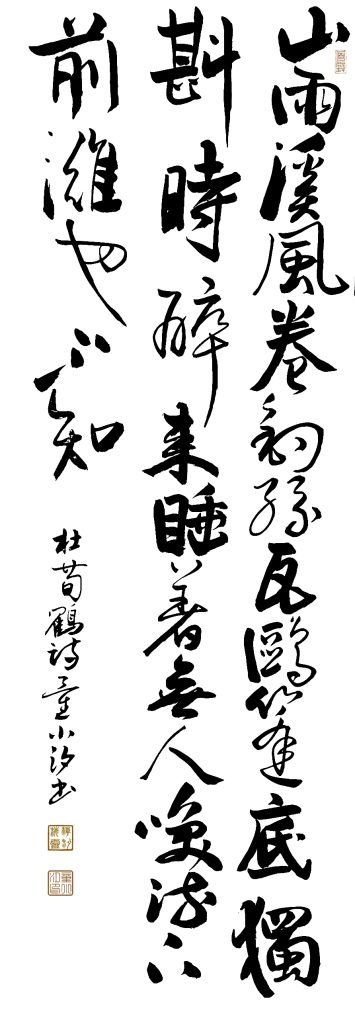 山雨溪風卷釣絲瓦甌篷底獨
斟時醉來睡著無人喚流下
前灘也不知
杜荀鶴詩童小汐書